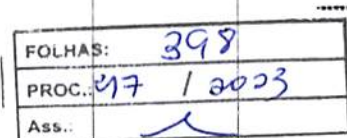 FOLHAS: 398
PROC.: 47 / 2023
Ass.: